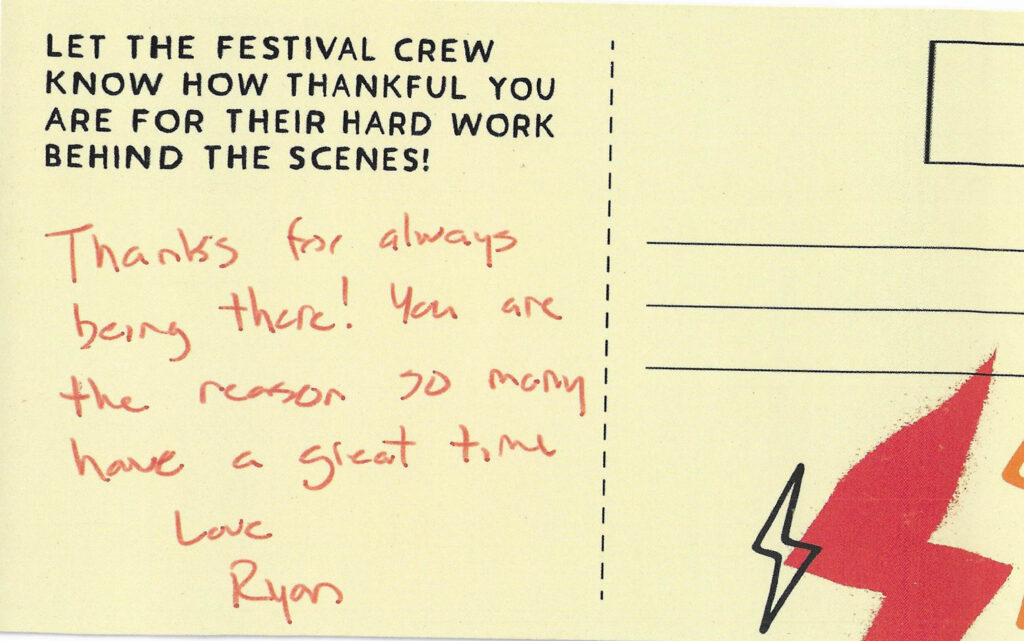 LET THE FESTIVAL CREW
KNOW HOW THANKFUL YOU
ARE FOR THEIR HARD WORK
BEHIND THE SCENES!
Thanks for always
being there! You are
the reason so many
have a great time
Love
Ryan